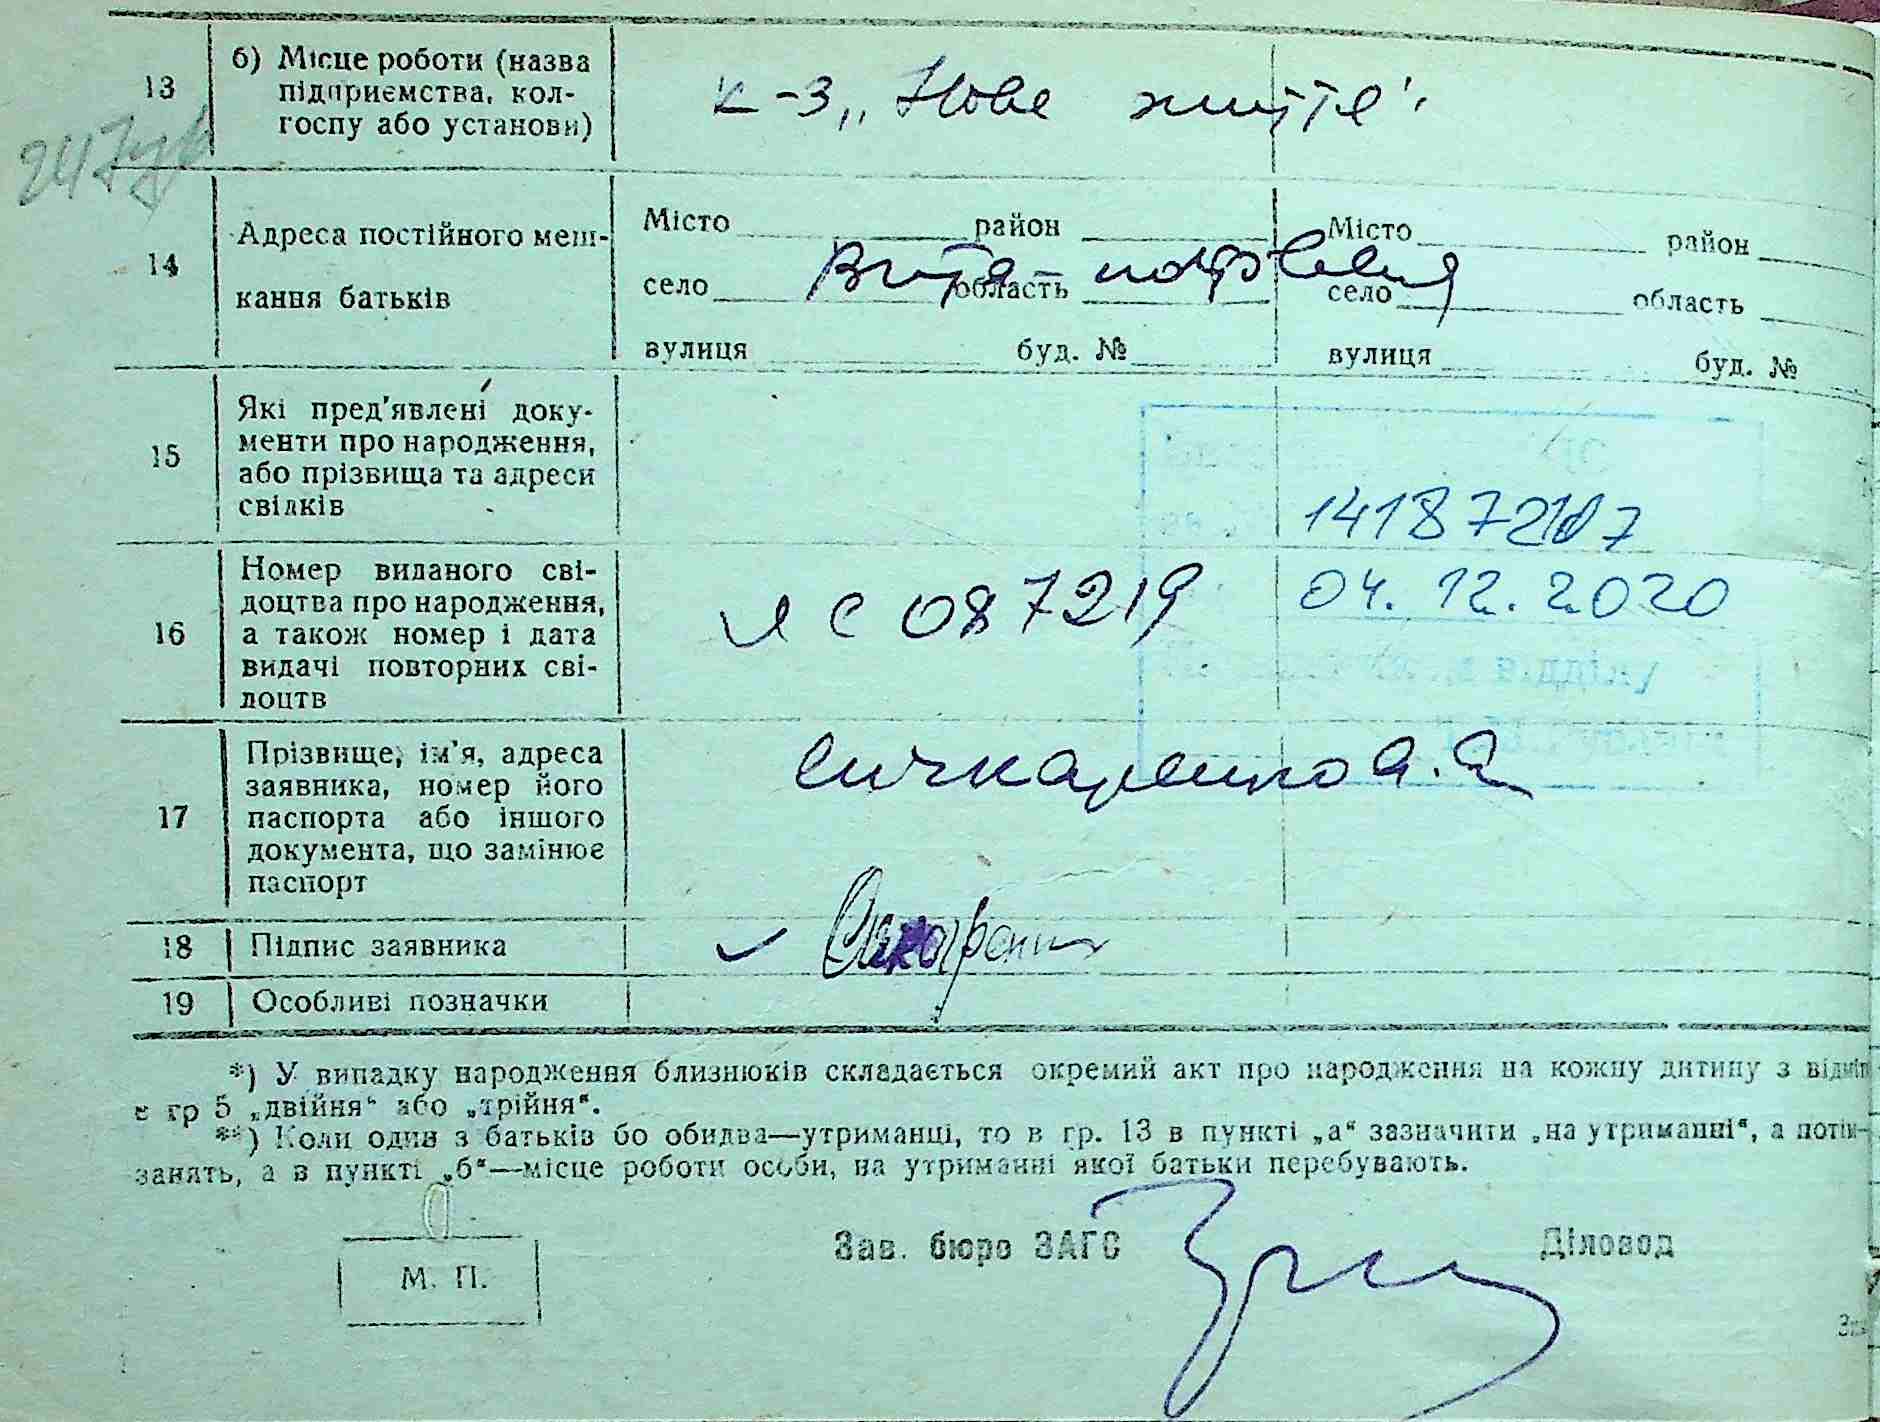 13
б) Місце роботи (назва
підприємства, кол-
госпу або установи)
к-з „Нове життя"
14
Адреса постійного меш-
кання батьків
Місто район
село область
вулиця буд. №
Місто район
село область
вулиця буд. №
Вита поштова
15
Які пред'явлені доку-
менти про народження,
або прізвища та адреси
свідків
04.12.2020
16
Номер виданого сві-
доцтва про народження,
а також номер і дата
видачі повторних сві-
доцтв
ЯС 087219
17
Прізвище, ім'я, адреса
заявника, номер його
паспорта або іншого
документа, що замінює
паспорт
Сичкаренко А. А
18
Підпис заявника
19
Особливі позначки
*) У випадку народження близнюків складається окремий акт про народження на кожну дитину з
в гр 5 „двійня“ або „трійня“.
**) Коли один з батьків бо обидва—утриманці, то в гр. 13 в пункті „а“ зазначити „на утриманні“, а потім—
занять, а в пункті „б“—місце роботи особи, на утриманні якої батьки перебувають.
Зав. бюро ЗАГС
Діловод
М. П.